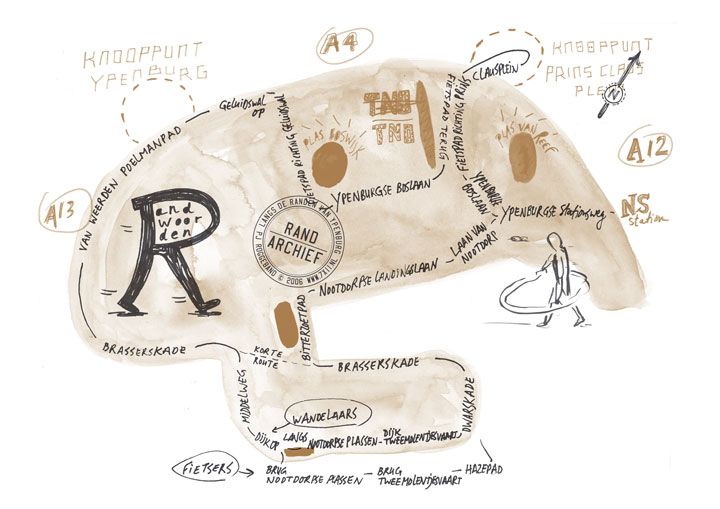 A4
KNOOPPUNT
YPENBURG
KNOOPPUNT
PRINS CLAUS
PLEIN
N
CLAUSPLEIN
GELUIDSWAL
OP
TNO
TNO
PLAS BOSWIJK
FIETSPAD RICHTING GELUIDSWAL
FIETSPAD TERUG
FIETSPAD RICHTING PRINS
A12
A13
VAN WEERDEN POELMANPAD
YPENBURGSE BOSLAAN
YPENBURGSE
BOSLAAN
YPENBURGSE STATIONSWEG
NS
Station
Rand
woor
den
LANGS DE RANDEN VAN YPENBURG
RAND
ARCHIEF
LAAN VAN
NOOTDORP
NOOTDORPSE LANDINGSLAAN
BITTERZOETPAD
BRASSERSKADE
KORTE
ROUTE
BRASSERSKADE
MIDDELWEG
DWARSKADE
WANDELAARS
DIJK OP
LANGS
NOOTDORPSE PLASSEN
DIJK
TWEEMOLENTJESVAART
FIETSERS
BRUG
NOOTDORPSE PLASSEN
BRUG
TWEEMOLENTJESVAART
HAZEPAD